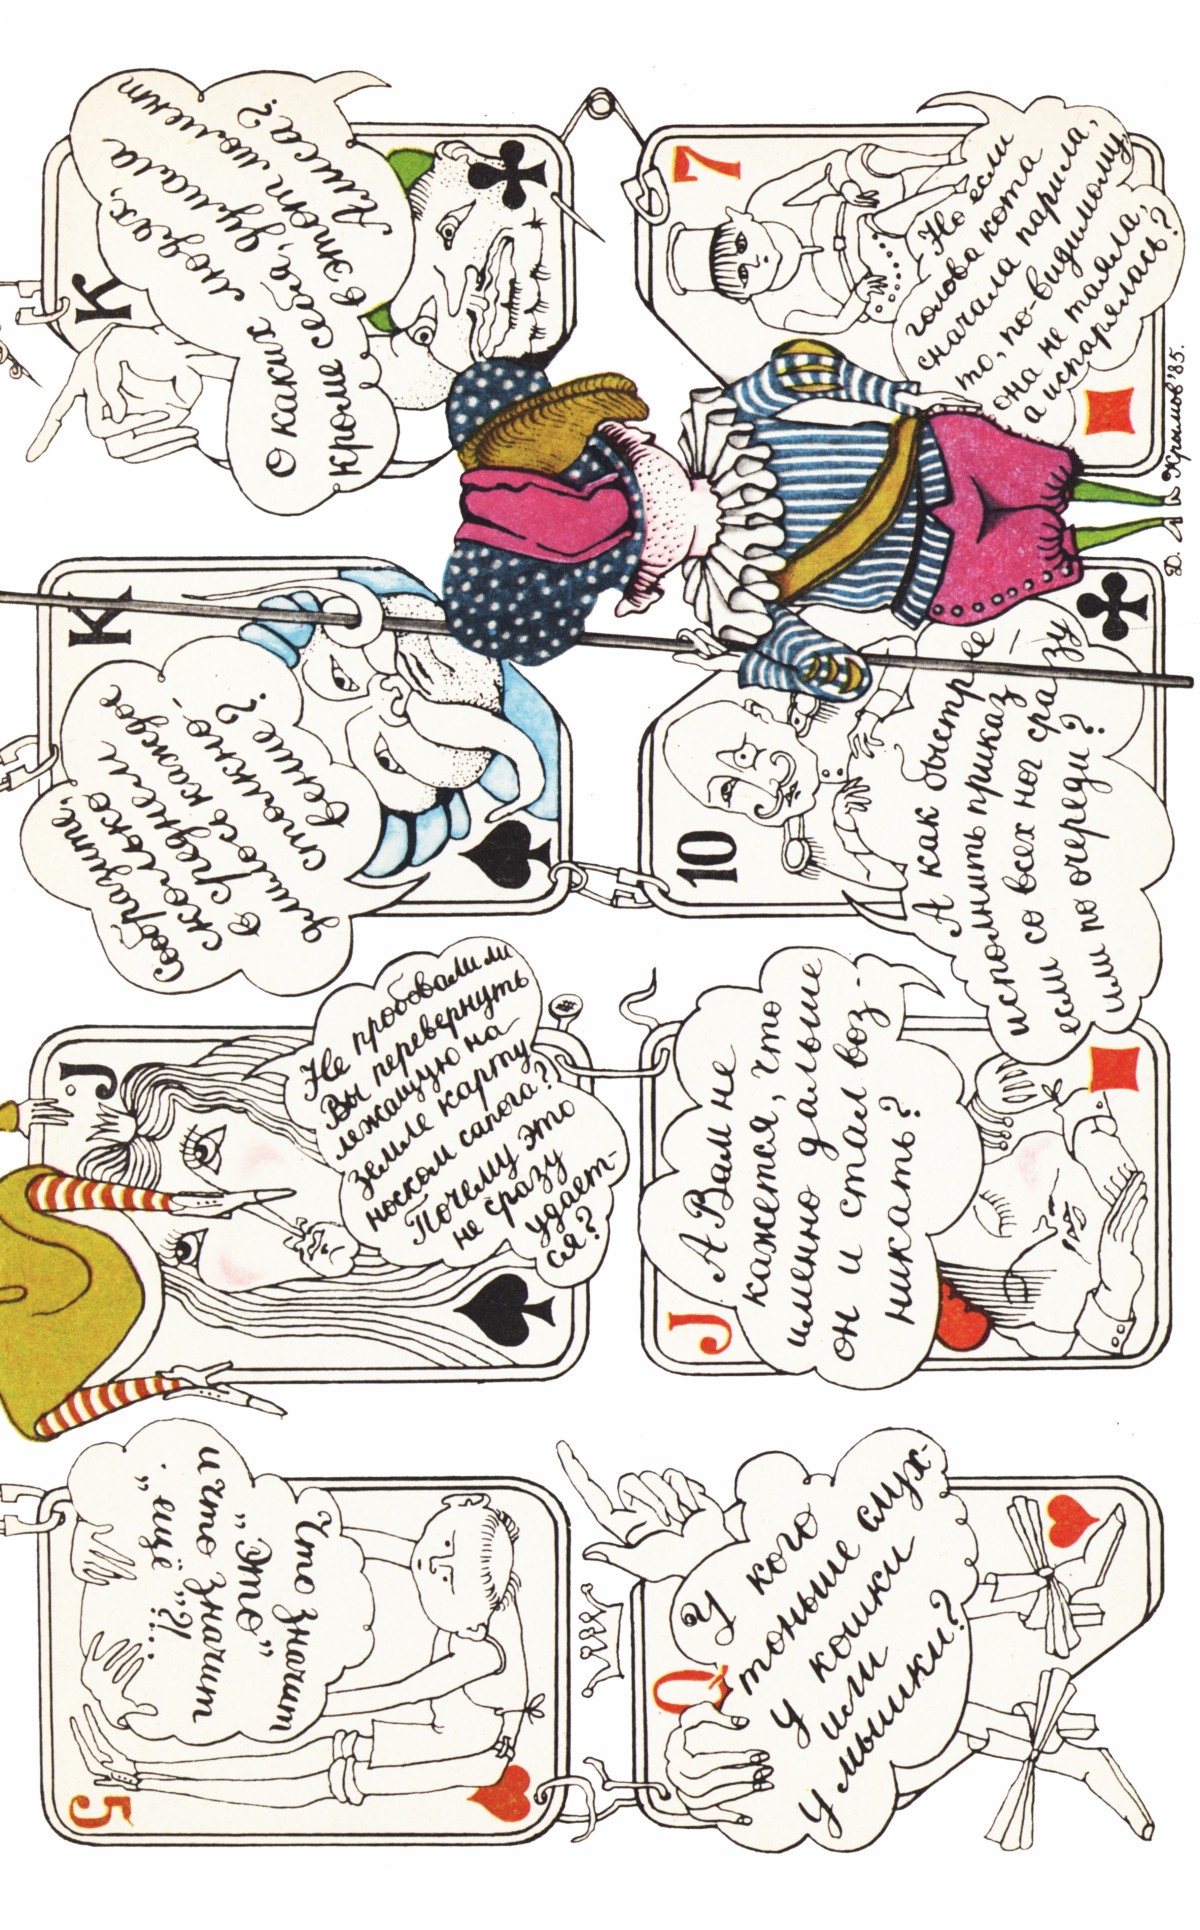 5
Что значит
„Это"
и что значит
„ещё"?!...
J
Не пробовали ли
Вы перевернуть
лежащую на
земле карту
носком сапога?
Почему это
не сразу
удает-
ся?
K
Сообразите,
сколько
в среднем
длилось каждое
столкно-
вение?
K
О каких людях,
кроме себя, думала
в этот момент
Алиса?
Q
У кого
тоньше слух-
у кошки
или
у мышки?
J
А Вам не
кажется, что
именно дальше
он и стал воз-
никать?
10
А как быстрее
исполнить приказ
если со всех ног сразу
или по очереди?
7
Но если
голова кота
сначала парила,
то, по-видимому,
она не таяла,
а испарялась?
Д. Крымов'85.